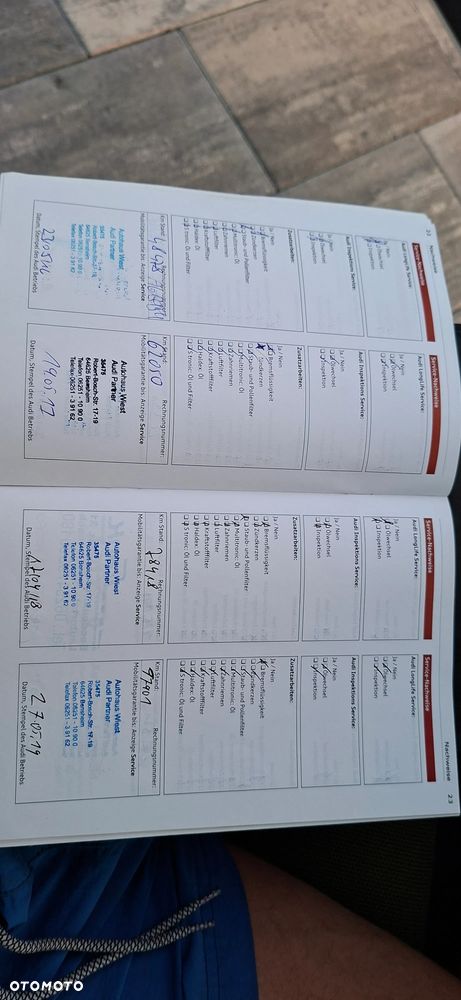 22
Nachweise
Service-Nachweise
Audi LongLife Service:
Ja / Nein
Ölwechsel
Inspektion
Audi Inspektions Service:
Ja / Nein
Ölwechsel
Inspektion
Zusatzarbeiten:
Ja / Nein
Bremsflüssigkeit
Zündkerzen
Staub- und Pollenfilter
Multitronic Öl
Zahnriemen
Luftfilter
Kraftstofffilter
Haldex Öl
S tronic Öl und Filter
Km Stand:
Mobilitätsgarantie bis: Anzeige Service
Autohaus Wiest
Audi Partner
35475
Robert-Bosch-Str. 17-19
64625 Bensheim
Telefon 06251 - 10 90 0
Telefax 06251 - 3 91 62
Datum, Stempel des Audi Betriebs
Service-Nachweise
Audi LongLife Service:
Ja / Nein
Ölwechsel
Inspektion
Audi Inspektions Service:
Ja / Nein
Ölwechsel
Inspektion
Zusatzarbeiten:
Ja / Nein
Bremsflüssigkeit
Zündkerzen
Staub- und Pollenfilter
Multitronic Öl
Zahnriemen
Luftfilter
Kraftstofffilter
Haldex Öl
S tronic Öl und Filter
Km Stand:
Rechnungsnummer:
Mobilitätsgarantie bis: Anzeige Service
Autohaus Wiest
Audi Partner
35475
Robert-Bosch-Str. 17-19
64625 Bensheim
Telefon 06251 - 10 90 0
Telefax 06251 - 3 91 62
Datum, Stempel des Audi Betriebs
Service-Nachweise
Audi LongLife Service:
Ja / Nein
Ölwechsel
Inspektion
Audi Inspektions Service:
Ja / Nein
Ölwechsel
Inspektion
Zusatzarbeiten:
Ja / Nein
Bremsflüssigkeit
Zündkerzen
Staub- und Pollenfilter
Multitronic Öl
Zahnriemen
Luftfilter
Kraftstofffilter
Haldex Öl
S tronic Öl und Filter
Km Stand:
Rechnungsnummer:
78418
Mobilitätsgarantie bis: Anzeige Service
Autohaus Wiest
Audi Partner
35475
Robert-Bosch-Str. 17-19
64625 Bensheim
Telefon 06251 - 10 90 0
Telefax 06251 - 3 91 62
Datum, Stempel des Audi Betriebs
Nachweise
23
Service-Nachweise
Audi LongLife Service:
Ja / Nein
Ölwechsel
Inspektion
Audi Inspektions Service:
Ja / Nein
Ölwechsel
Inspektion
Zusatzarbeiten:
Ja / Nein
Bremsflüssigkeit
Zündkerzen
Staub- und Pollenfilter
Multitronic Öl
Zahnriemen
Luftfilter
Kraftstofffilter
Haldex Öl
S tronic Öl und Filter
Km Stand:
Rechnungsnummer:
Mobilitätsgarantie bis: Anzeige Service
Autohaus Wiest
Audi Partner
35475
Robert-Bosch-Str. 17-19
64625 Bensheim
Telefon 06251 - 10 90 0
Telefax 06251 - 3 91 62
27.05.19
Datum, Stempel des Audi Betriebs
OTOMOTO